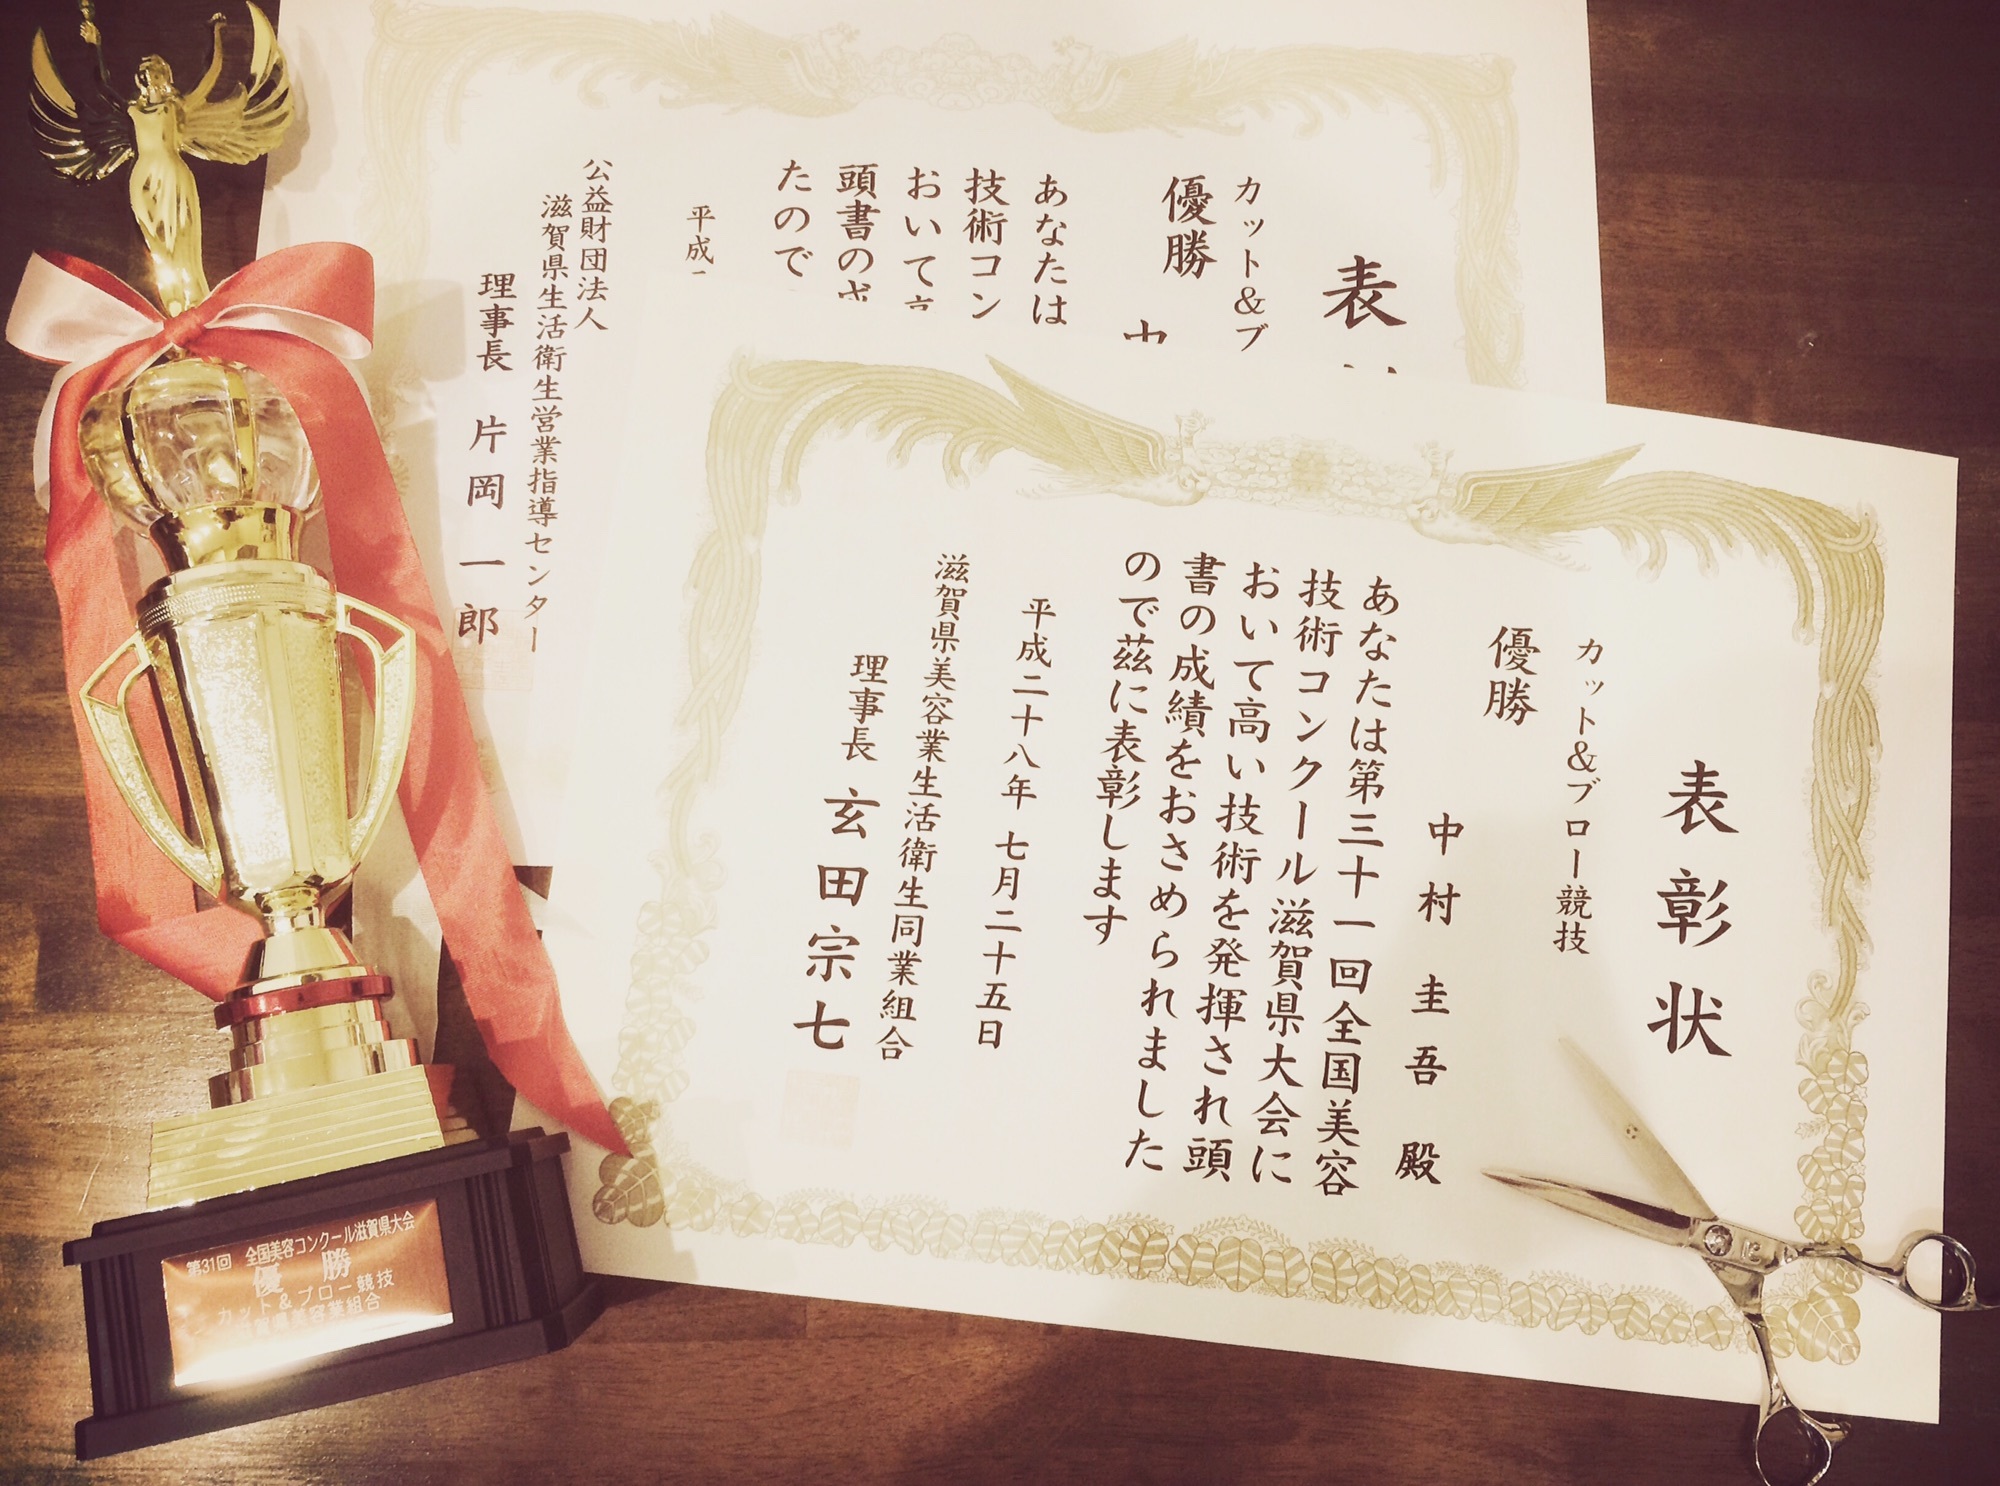 表彰状
カット&ブロー競技
優勝
中村圭吾殿
あなたは第三十一回全国美容
技術コンクール滋賀県大会に
おいて高い技術を発揮され頭
書の成績をおさめられました
ので茲に表彰します
平成二十八年七月二十五日
滋賀県美容業生活衛生同業組合
理事長 玄田宗七
表
カット&ブ
優勝
中
あなたは
技術コン
おいて高
頭書の成
たので
平成
公益財団法人
滋賀県生活衛生営業指導センター
理事長 片岡一郎
第31回 全国美容コンクール滋賀県大会
優勝
カット&ブロー競技
滋賀県美容業組合